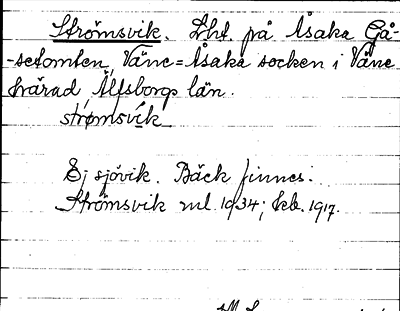 Strömsvik. Lht. på Åsaka Gå-
-setomten, Väne=Åsaka socken i Väne
härad Älfsborgs län.
strømsvík
Ej sjövik. Bäck finnes.
Strömsvik ml. 1934; kb. 1917.